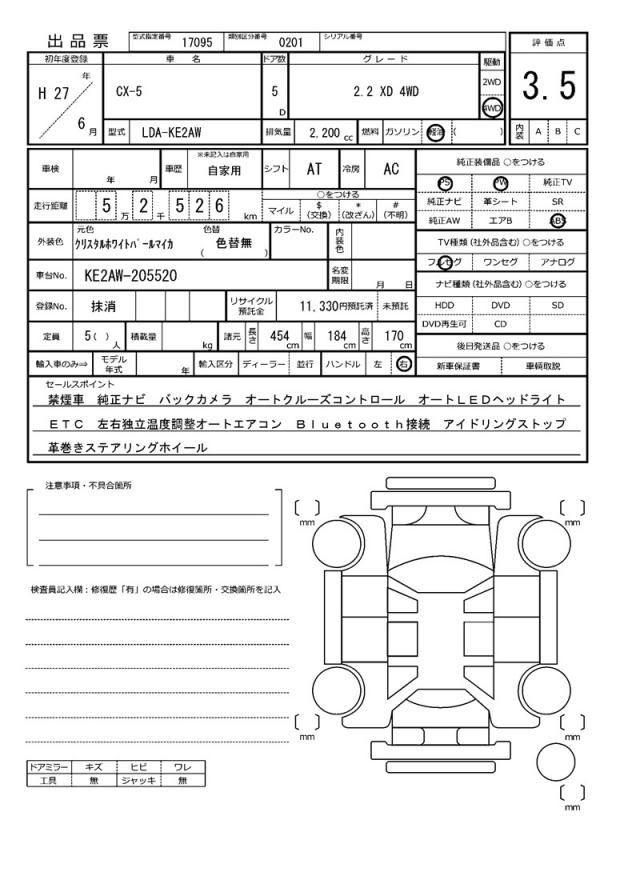 出品票 型式指定番号 17095 類別区分番号 0201 シリアル番号
評価点
3.5
内装 A B C
初年度登録 車名 ドア数 グレード 駆動
H 27 年 6 月 CX-5 5 D 2.2 XD 4WD 2WD 4WD
型式 LDA-KE2AW 排気量 2,200 cc 燃料 ガソリン 軽油 ( )
車検 年 月 車歴 ※未記入は自家用 自家用 シフト AT 冷房 AC
走行距離 5 万 2 千 5 2 6 km ○をつける
マイル $(交換) *(改ざん) #(不明)
外装色 元色 クリスタルホワイトパールマイカ 色替 ( 色替無 ) カラーNo. 内装色
車台No. KE2AW-205520 名変期限 月 日
登録No. 抹消 リサイクル預託金 11,330円預託済 未預託
定員 5( )人 積載量 kg 諸元 長さ 454 cm 幅 184 cm 高さ 170 cm
輸入車のみ⇒ モデル年式 年 輸入区分 ディーラー 並行 ハンドル 左 右
純正装備品 ○をつける
PS PW 純正TV
純正ナビ 革シート SR
純正AW エアB ABS
TV種類 (社外品含む) ○をつける
フルセグ ワンセグ アナログ
ナビ種類 (社外品含む) ○をつける
HDD DVD SD
DVD再生可 CD
後日発送品 ○をつける
新車保証書 車輌取説
セールスポイント
禁煙車 純正ナビ バックカメラ オートクルーズコントロール オートLEDヘッドライト
ETC 左右独立温度調整オートエアコン Bluetooth接続 アイドリングストップ
革巻きステアリングホイール
注意事項・不具合箇所
検査員記入欄：修復歴「有」の場合は修復箇所・交換箇所を記入
ドアミラー キズ ヒビ ワレ
工具 無 ジャッキ 無
mm mm
mm mm
mm